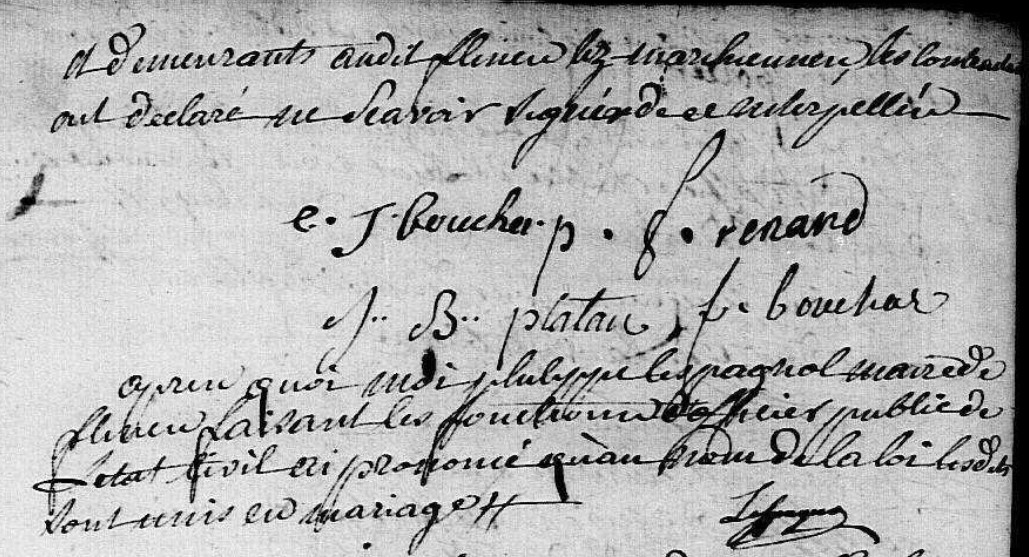 et demeurants audit flinen lez marchiennen, les contractans
ont declaré ne scavoir signér de ce interpellée
e. J. boucher. p. f. renard
J. B. platau, f. bouchar
apren quoi moi philippe lespagnol maire de
flinen faisant les fonctions d'officier public de
l'etat civil ai prononcé qu'au nom de la loi lesdits
sont unis en mariage
Lespagnol